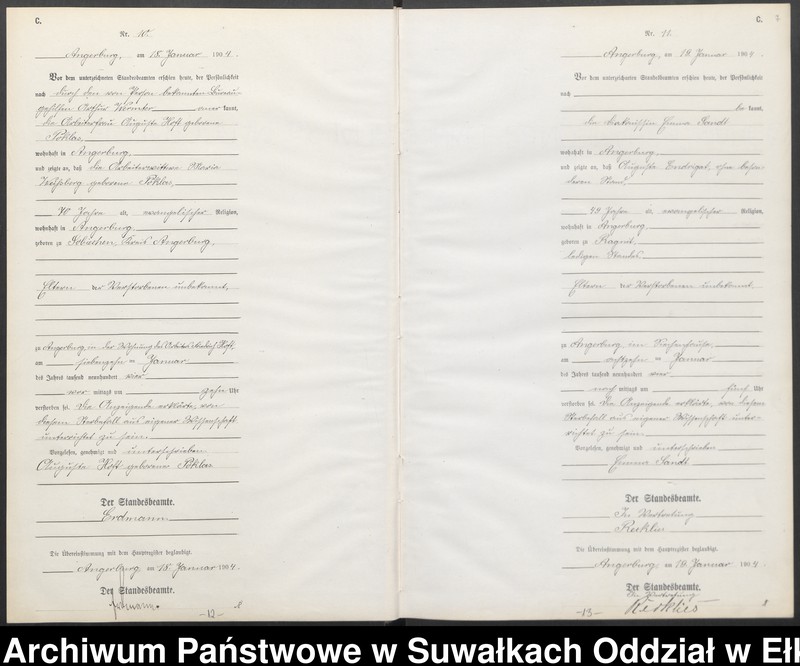 C.
Nr. 10.
Angerburg, am 18. Januar 1904.
Vor dem unterzeichneten Standesbeamten erschien heute, der Persönlichkeit
nach durch den von Person bekannten Bureau-
gehilfen Arthur kannt,
die Arbeiterfrau Auguste Hoft geborene
Poklas
wohnhaft in Angerburg,
und zeigte an, daß die Arbeiterwittwe Maria
geborene Poklas,
70 Jahre alt, evangelischer Religion,
wohnhaft in Angerburg,
geboren zu Kreis Angerburg,
Eltern der Verstorbenen unbekannt,
zu Angerburg in der Wohnung des Hoft,
am siebenzehnten Januar
des Jahres tausend neunhundert vier
vor mittags um zehn Uhr
verstorben sei. Die Anzeigende erklärte, von
diesem Sterbefall aus eigener Wissenschaft
unterrichtet zu sein.
Vorgelesen, genehmigt und unterschrieben
Auguste Hoft geborene Poklas
Der Standesbeamte.
Erdmann
Die Übereinstimmung mit dem Hauptregister beglaubigt.
Angerburg, am 18. Januar 1904.
Der Standesbeamte.
Erdmann.
-12-
C.
Nr. 11.
Angerburg, am 19. Januar 1904.
Vor dem unterzeichneten Standesbeamten erschien heute, der Persönlichkeit
nach
be kannt,
die Diakonissin Emma Sandt
wohnhaft in Angerburg,
und zeigte an, daß Auguste Endrigat, ohne beson-
deren Stand,
49 Jahre alt, evangelischer Religion,
wohnhaft in Angerburg,
geboren zu Ragnit,
ledigen Standes,
Eltern der Verstorbenen unbekannt,
zu Angerburg im Siechenhause,
am achtzehnten Januar
des Jahres tausend neunhundert vier
nach mittags um fünf Uhr
verstorben sei. Die Anzeigende erklärte, von diesem
Sterbefall aus eigener Wissenschaft unter-
richtet zu sein.
Vorgelesen, genehmigt und unterschrieben
Emma Sandt
Der Standesbeamte.
In Vertretung
Reiklies
Die Übereinstimmung mit dem Hauptregister beglaubigt.
Angerburg, am 19. Januar 1904.
Der Standesbeamte.
In Vertretung
Reiklies
-13-
Archiwum Państwowe w Suwałkach Oddział w Eł